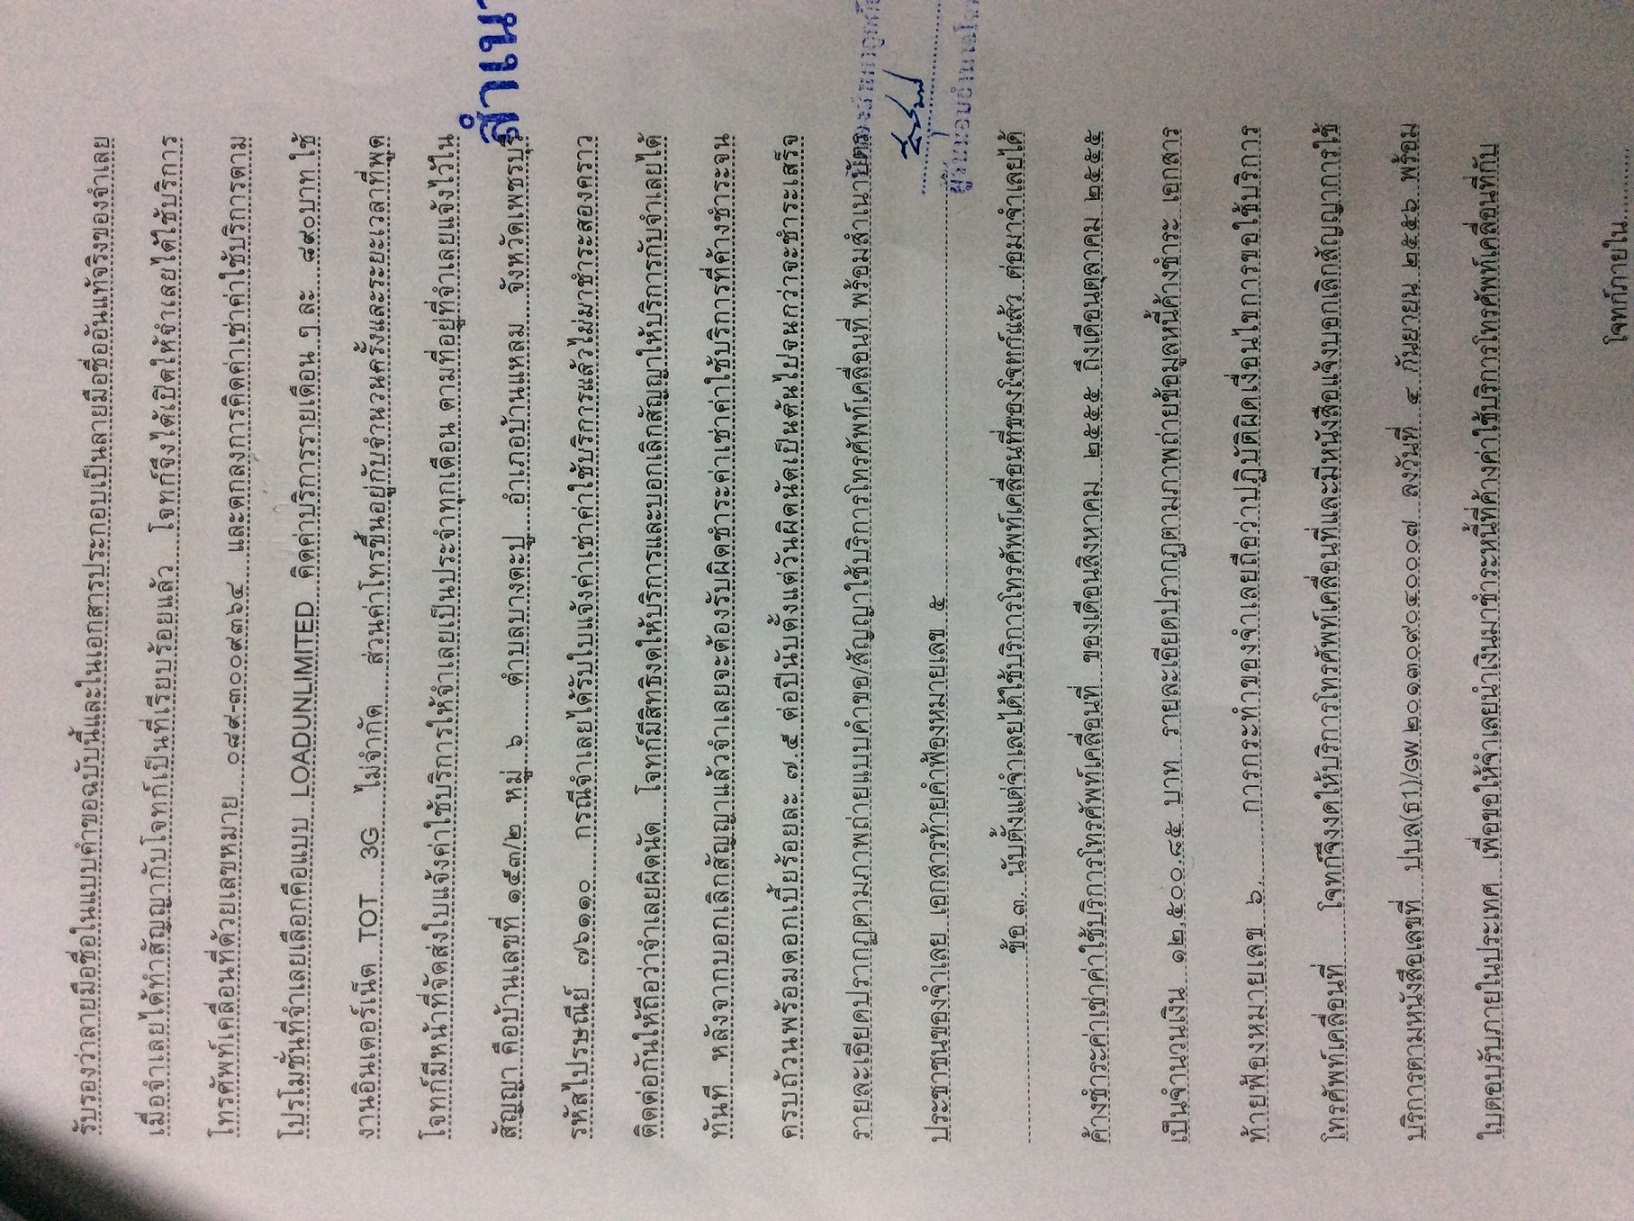 รับรองว่าลายมือชื่อในแบบคำขอฉบับนี้และในเอกสารประกอบเป็นลายมือชื่ออันแท้จริงของจำเลย
เมื่อจำเลยได้ทำสัญญากับโจทก์เป็นที่เรียบร้อยแล้ว โจทก์จึงได้เปิดให้จำเลยได้ใช้บริการ
โทรศัพท์เคลื่อนที่ด้วยเลขหมาย ๐๘๙-๓๐๐๙๓๖๔ และตกลงการคิดค่าเช่าค่าใช้บริการตาม
โปรโมชั่นที่จำเลยเลือกคือแบบ LOADUNLIMITED คิดค่าบริการรายเดือน ๆ ละ ๘๙๐บาท ใช้
งานอินเตอร์เน็ต TOT 3G ไม่จำกัด ส่วนค่าโทรขึ้นอยู่กับจำนวนครั้งและระยะเวลาที่พูด
โจทก์มีหน้าที่จัดส่งใบแจ้งค่าใช้บริการให้จำเลยเป็นประจำทุกเดือน ตามที่อยู่ที่จำเลยแจ้งไว้ใน
สัญญา คือบ้านเลขที่ ๑๕๓/๒ หมู่ ๖ ตำบลบางตะปู อำเภอบ้านแหลม จังหวัดเพชรบุรี
สำเนา
รหัสไปรษณีย์ ๗๖๑๑๐ กรณีจำเลยได้รับใบแจ้งค่าเช่าค่าใช้บริการแล้วไม่มาชำระสองคราว
ติดต่อกันให้ถือว่าจำเลยผิดนัด โจทก์มีสิทธิงดให้บริการและบอกเลิกสัญญาให้บริการกับจำเลยได้
ทันที หลังจากบอกเลิกสัญญาแล้วจำเลยจะต้องรับผิดชำระค่าเช่าค่าใช้บริการที่ค้างชำระจน
ครบถ้วนพร้อมดอกเบี้ยร้อยละ ๗.๕ ต่อปีนับตั้งแต่วันผิดนัดเป็นต้นไปจนกว่าจะชำระเสร็จ
รายละเอียดปรากฏตามภาพถ่ายแบบคำขอ/สัญญาใช้บริการโทรศัพท์เคลื่อนที่ พร้อมสำเนาบัตร
ประชาชนของจำเลย เอกสารท้ายคำฟ้องหมายเลข ๕
ข้อ ๓. นับตั้งแต่จำเลยได้ใช้บริการโทรศัพท์เคลื่อนที่ของโจทก์แล้ว ต่อมาจำเลยได้
ค้างชำระค่าเช่าค่าใช้บริการโทรศัพท์เคลื่อนที่ ของเดือนสิงหาคม ๒๕๕๕ ถึงเดือนตุลาคม ๒๕๕๕
เป็นจำนวนเงิน ๑๒,๕๐๐.๘๕ บาท รายละเอียดปรากฏตามภาพถ่ายข้อมูลหนี้ค้างชำระ เอกสาร
ท้ายฟ้องหมายเลข ๖. การกระทำของจำเลยถือว่าปฏิบัติผิดเงื่อนไขการขอใช้บริการ
โทรศัพท์เคลื่อนที่ โจทก์จึงงดให้บริการโทรศัพท์เคลื่อนที่และมีหนังสือแจ้งบอกเลิกสัญญาการใช้
บริการตามหนังสือเลขที่ ปบล(ธ1)/GW ๒๐๑๓๐๙๐๔๐๐๐๗ ลงวันที่ ๔ กันยายน ๒๕๕๖ พร้อม
ใบตอบรับภายในประเทศ เพื่อขอให้จำเลยนำเงินมาชำระหนี้ที่ค้างค่าใช้บริการโทรศัพท์เคลื่อนที่กับ
โจทก์ภายใน